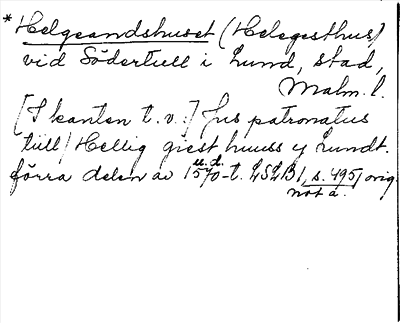 *Helgeandshuset (Helegesthus)
vid Södertull i Lund, stad,
Malm. l.
[I kanten t. v.:] Jus patronatus
till / Hellig giest huuss y Lundt.
u. d.
förra delen av 1570-t. LSLB 1, s. 495, orig.
not a.